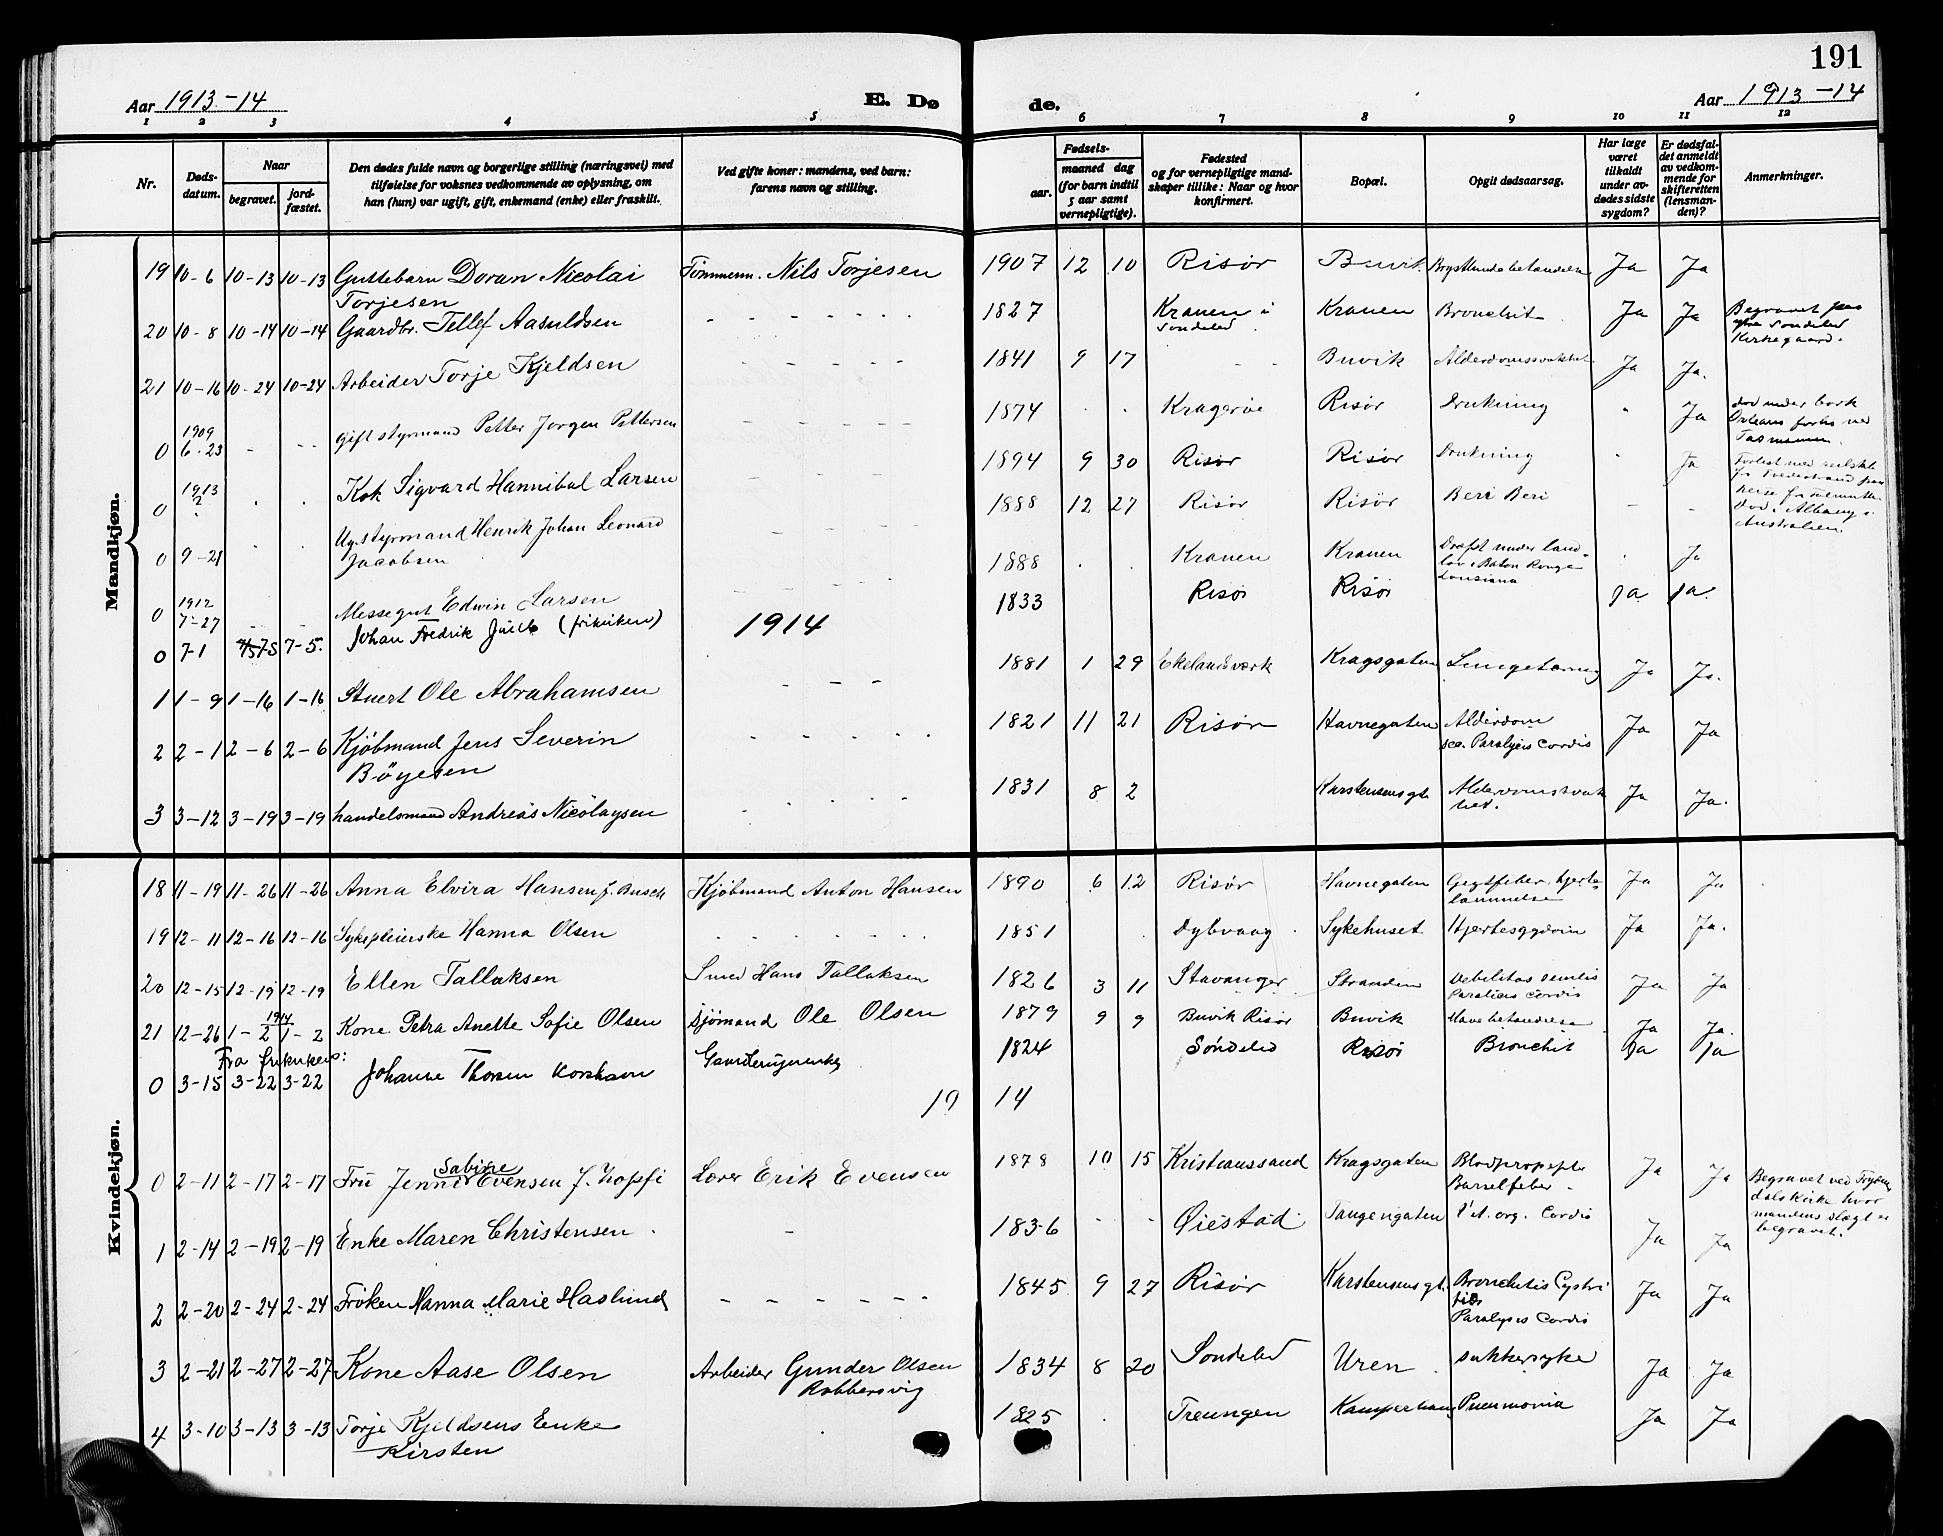 191
Aar 1913-14
E. Dø
de.
Aar 1913-14
1 2 3 4 5 6 7 8 9 10 11 12
Nr.
Døds-
datum.
Naar
begravet.
jord-
fæstet.
Den dødes fulde navn og borgerlige stilling (næringsvei) med
tilføielse for voksnes vedkommende av oplysning, om
han (hun) var ugift, gift, enkemand (enke) eller fraskilt.
Ved gifte koner: mandens, ved barn:
farens navn og stilling.
Fødsels-
aar.
maaned dag
(for barn indtil
5 aar samt
vernepligtige).
Fødested
og for vernepligtige mand-
skaper tillike: Naar og hvor
konfirmert.
Bopæl.
Opgit dødsaarsag.
Har læge
været
tilkaldt
under av-
dødes sidste
sygdom?
Er dødsfal-
det anmeldt
av vedkom-
mende for
skifteretten
(lensman-
den)?
Anmerkninger.
Mandkjøn.
19 10-6 10-13 10-13 Guttebarn Doran Nicolai Tømmerm. Nils Torjesen 1907 12 10 Risør Buvik Ja Ja
Torjesen
20 10-8 10-14 10-14 Gaardbr. Tellef Aasuldsen - - - - - - - 1827 Kranen i Kranen Bronchit Ja Ja Begravet paa
Søndeled søndeled
Kirkegaard.
21 10-16 10-24 10-24 Arbeider Torje Kjeldsen - - - - 1841 9 17 - - Buvik Alderdomssvakhet Ja Ja.
0 1909 6-23 - - - gift styrmand Petter Jørgen Pettersen - - - - - 1874 . . Kragerøe Risør Drukning " Ja død under bark
Orleans forlis ved
Tasmanien.
0 1913 2 . . Kok Sigvard Hannibal Larsen - - - 1894 9 30 Risør Risør Drukning " Ja
0 9-21 . . Ug. styrmand Henrik Johan Leonard - - - 1888 12 27 Risør Risør Beri Beri - -
Jacobsen
død i Albany i
Australien.
0 1912 7-27 - - Messegut Edwin Larsen - - - 1888 . . Kranen Kranen Dræpt under land-
lov i Baton Rouge
Louisiana . Ja
0 7-1 7-5 7-5. Johan Fredrik Juell (frikirken) 1833 Risør Risør Ja Ja.
1914
1 1-9 1-16 1-16 Stuert Ole Abrahamsen - - - 1881 1 29 Ekelandsværk Kragsgaten Lungetæring Ja Ja.
2 2-1 2-6 2-6 Kjøbmand Jens Severin - - - - - 1821 11 21 Risør Havnegaten Alderdom Ja Ja
Bøyesen
Paralysis Cordis
3 3-12 3-19 3-19 handelsmand Andreas Nicolaysen - - - - 1831 8 2 Karstensensgt. Alderdomssvak
hed. Ja Ja.
Kvindekjøn.
18 11-19 11-26 11-26 Anna Elvira Hansen f. Busch Kjøbmand Anton Hansen 1890 6 12 Risør Havnegaten Gigtfeber, hjerte-
lammelse Ja Ja
19 12-11 12-16 12-16 Sykepleierske Hanna Olsen . . . . . . . 1851 . Dybvaag . Sykehuset Hjertesygdom Ja Ja.
20 12-15 12-19 12-19 Ellen Tallaksen Smed Hans Tallaksen 1826 3 11 Stavanger Stranden Debilitas senilis
Paralisis Cordis Ja Ja
21 12-26 1914 1-2 1-2 Kone Petra Anette Sofie Olsen Sjømand Ole Olsen 1879 9 9 Buvik Risør Buvik Mavebetændelse Ja Ja.
Fra frikirken:
0 3-15 3-22 3-22 Johanne Thorsen 1824 Søndeled Risør Bronchit Ja Ja
1914
0 2-11 2-17 2-17 Fru Jenni Sabine Evensen f. Zopfi Lærer Erik Evensen 1878 10 15 Kristianssand Kragsgaten Blodprop efter
Barselfeber. Ja Ja Begravet ved Fryden
dals kirke hvor
mandens slægt er
begravet.
1 2-14 2-19 2-19 Enke Maren Christensen . - 1836 - - Øiestad Tangengaten Vit. org. Cordis Ja Ja
2 2-20 2-24 2-24 Frøken Hanna Marie Haslund - - - - - - 1845 9 27 Risør Karstensensgt. Bronchitis Cysti
tis
Paralysis Cordis Ja Ja
3 2-21 2-27 2-27 Kone Aase Olsen Arbeider Gunder Olsen 1834 8 20 Søndeled Uren sukkersyke Ja Ja
Robbersvig
4 3-10 3-13 3-13 Torje Kjeldsens Enke 1825 . Treungen Kamperhaug Pneumonia Ja Ja
Kirsten